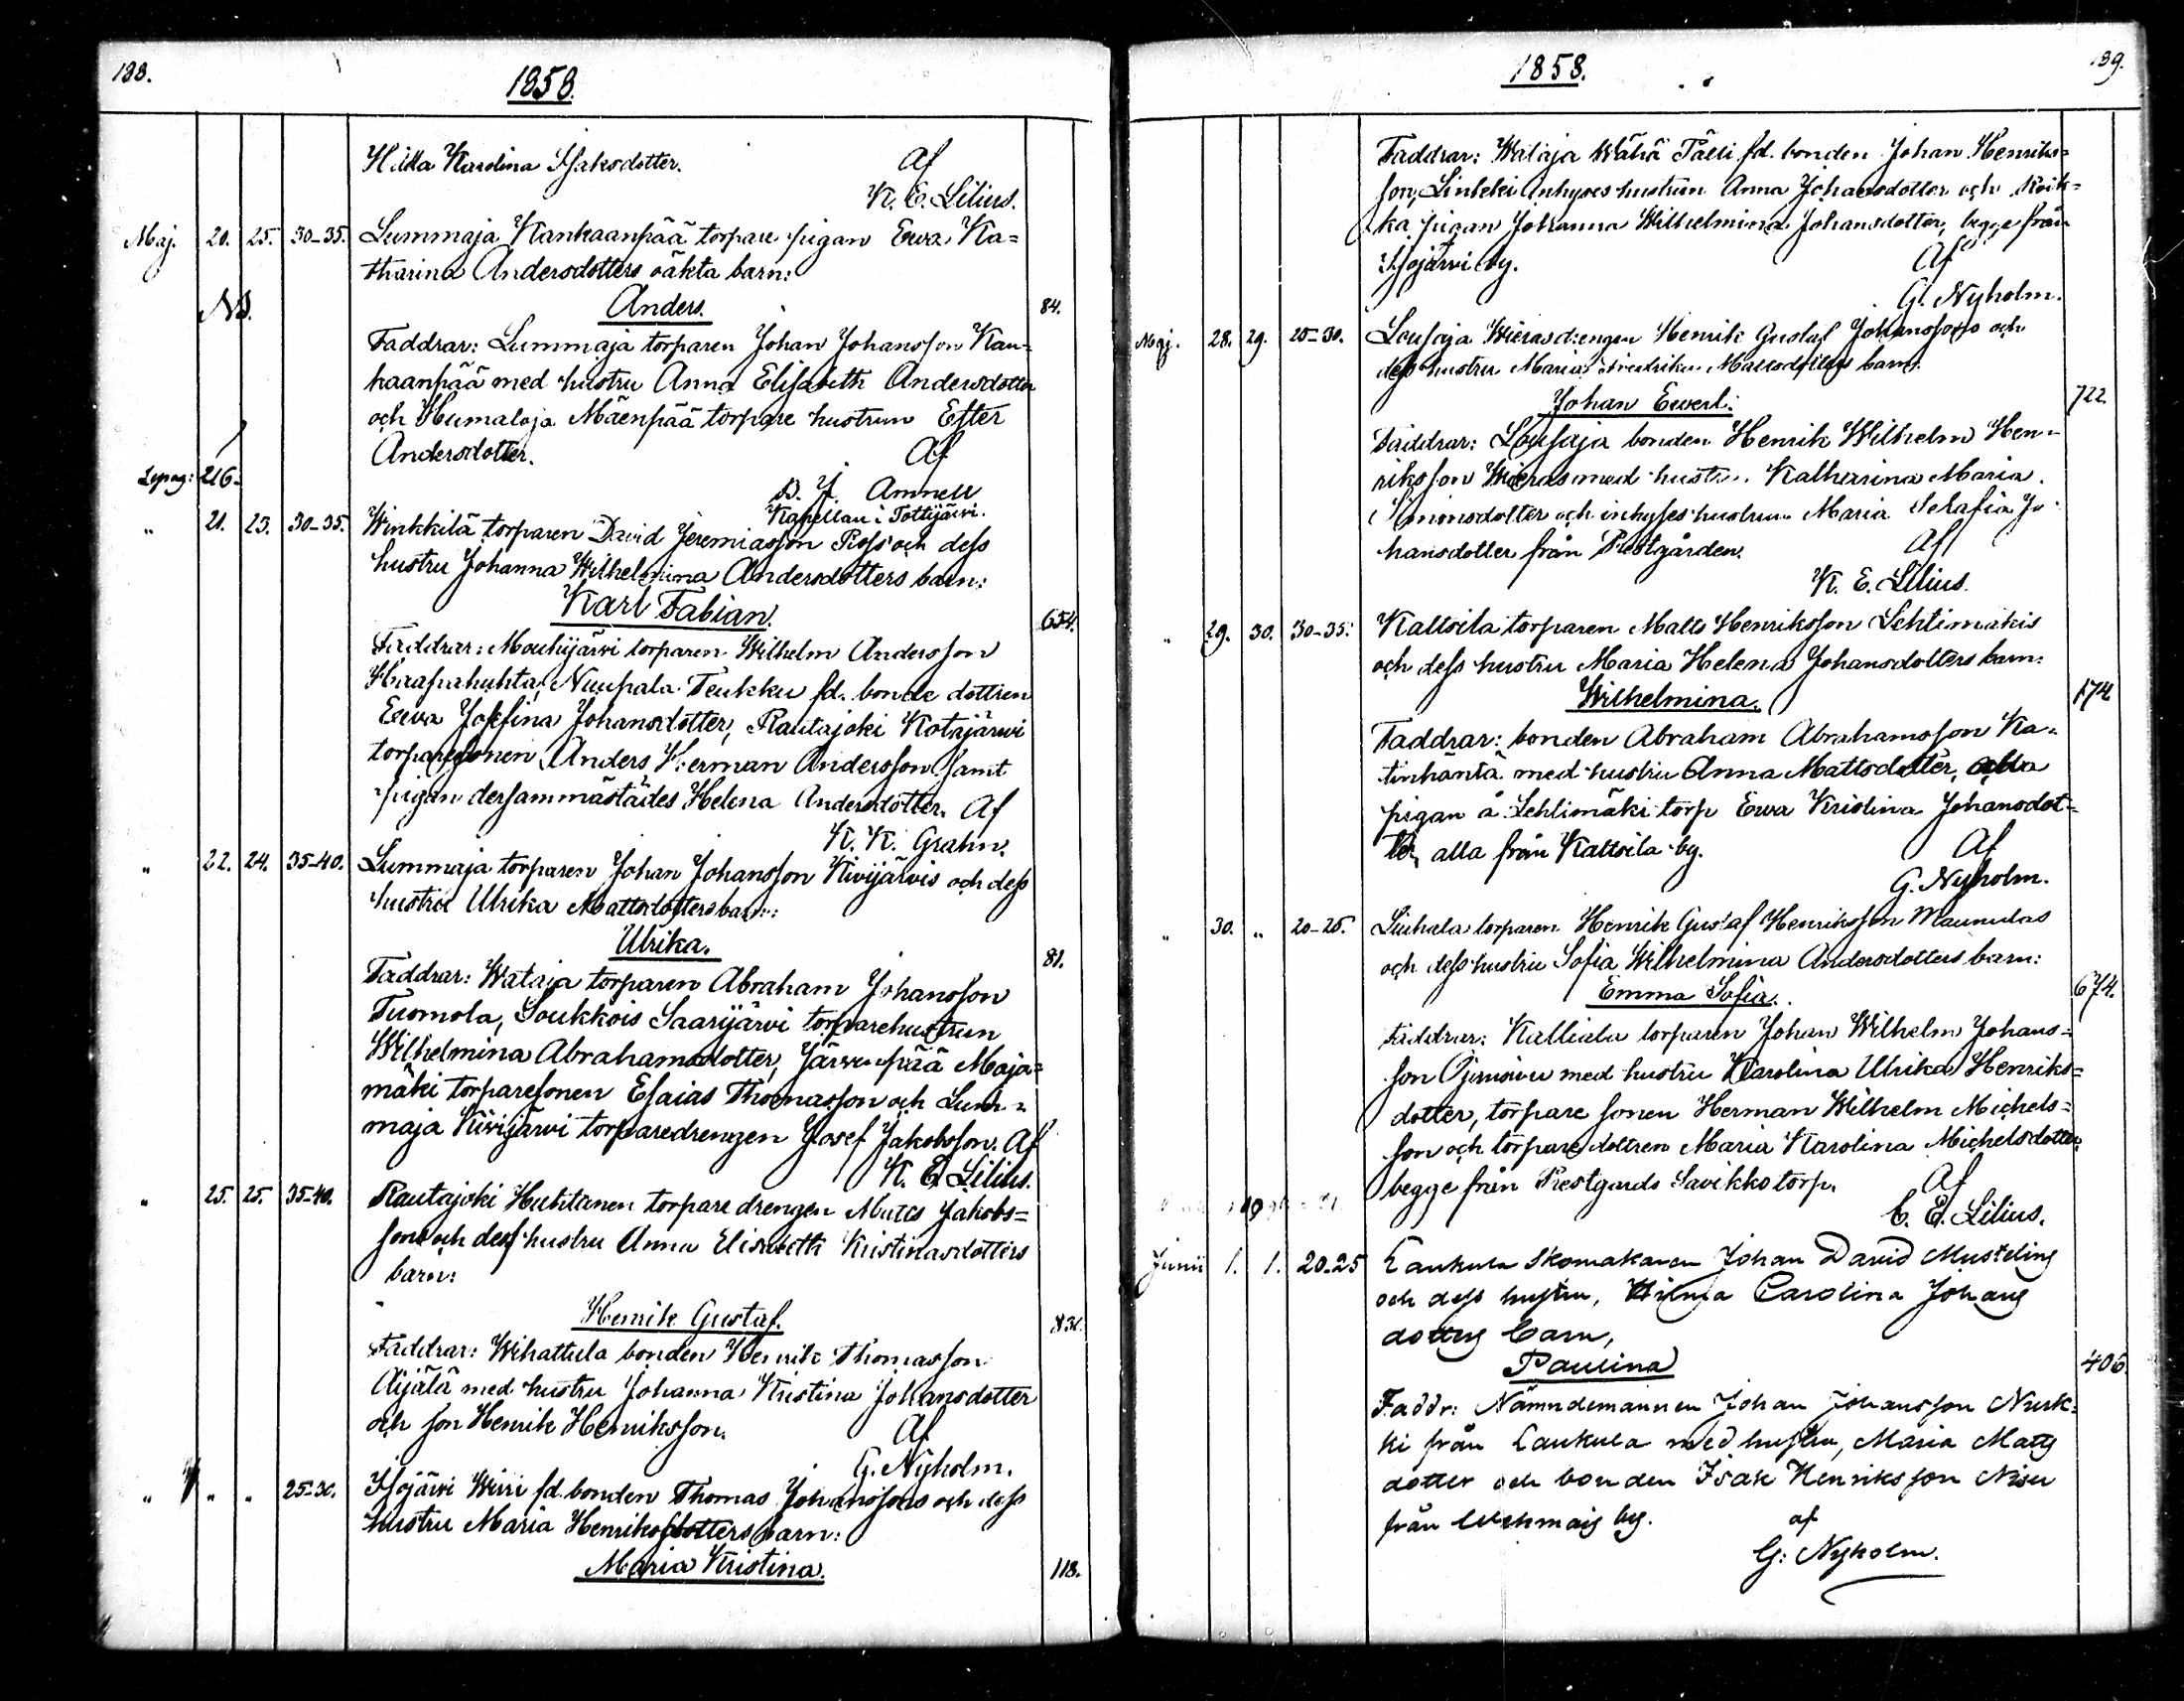 133.
1858.
Hilda Karolina Isaksdotter. Af
K. E. Lilius.
Maj. 20. 25. 30-35. Lummaja Kankaanpää torpare pigan Ewa Ka=
tharina Andersdotters oäkta barn:
NB. Anders. 84.
Faddrar: Lummaja torparen Johan Johansson Kan-
kaanpää med hustru Anna Elisabeth Andersdotter
och Humaloja Mäenpää torpare hustrun Ester
Andersdotter. Af
216.
D. J. Amnell
Kapellan i Tottijärvi.
" 21. 25. 30-35. Winkkilä torparen David Jeremiasson Ross och dess
hustru Johanna Wilhelmina Andersdotters barn:
Karl Fabian. 654.
Faddrar: Mouhijärvi torparen Wilhelm Andersson
Haapahuhta, Nuupala Teukku fd. bonde dottren
Ewa Josefina Johansdotter, Rautajoki Kotajärwi
torparesonen Anders Herman Andersson samt
pigan dersammastädes Helena Andersdotter. Af
K. K. Grahn.
" 22. 24. 35-40. Lummaja torparen Johan Johansson Kivijärvis och dess
hustru Ulrika Mattsdotters barn:
Ulrika. 81.
Faddrar: Wataja torparen Abraham Johansson
Tuomola, Soukkois Saarijärvi torparehustrun
Wilhelmina Abrahamsdotter, Järvenpää Maja=
mäki torparesonen Esaias Thomasson och Lum=
maja Kivijärvi torparedrengen Josef Jakobsson. Af
K. E. Lilius.
" 25. 25. 35-40. Rautajoki Huhtanen torpare drengen Matts Jakobs=
sons och dess hustru Anna Elisabeth Kristinasdotters
barn:
Henrik Gustaf. 831.
Faddrar: Wihattula bonden Henrik Thomasson
Äijälä med hustru Johanna Kristina Johansdotter
och son Henrik Henriksson. Af
G. Nyholm.
" " " 25-30. Isojärvi Wirri fd. bonden Thomas Johanssons och dess
hustru Maria Henriksdotters barn:
Maria Kristina. 118.
1858. 139.
Faddrar: Wataja Wähä Tälli fd. bonden Johan Henriks=
son, Linkki inhyses hustrun Anna Johansdotter och Koik=
ka pigan Johanna Wilhelmina Johansdotter, begge från
Isojärvi by. Af
G. Nyholm.
Maj. 28. 29. 25-30. Lousaja Wierasdrengen Henrik Gustaf Johanssons och
dess hustru Maria Fredrika Mattsdotters barn.
Johan Ewert. 722.
Faddrar: Lousaja bonden Henrik Wilhelm Hen=
riksson Wieras med hustru Katharina Maria
Simonsdotter och inhyses hustrun Maria Serafia Jo=
hansdotter från Prestgården. Af
K. E. Lilius.
" 29. 30. 30-35. Kaltsila torparen Matts Henriksson Lehtimäkis
och dess hustru Maria Helena Johansdotters barn:
Wilhelmina. 174
Faddrar: bonden Abraham Abrahamsson Ka=
tinhäntä med hustru Anna Mattsdotter,
pigan å Lehtimäki torp Ewa Kristina Johansdot=
ter, alla från Kaltsila by. Af
G. Nyholm.
" 30. " 20-25. Liuhala torparen Henrik Gustaf Henriksson Maunulas
och dess hustru Sofia Wilhelmina Andersdotters barn:
Emma Sofia. 674.
Faddrar: Kalliala torparen Johan Wilhelm Johans=
son Ojensivu med hustru Karolina Ulrika Henriks=
dotter, torpare sonen Herman Wilhelm Michels=
son och torpare dottren Maria Karolina Michelsdotter
begge från Prestgårds Savikko torp. Af
C. E. Lilius.
Junii 1. 1. 20-25 Laukula Skomakaren Johan David Mustelins
och dess hustru, Wilma Carolina Johans
dotters barn,
Paulina 406
Faddr: Nämndemannen Johan Johansson Nurk=
ki från Laukula med hustru, Maria Matts
dotter och bonden Isak Henriksson Nisu
från by. af
G: Nyholm.